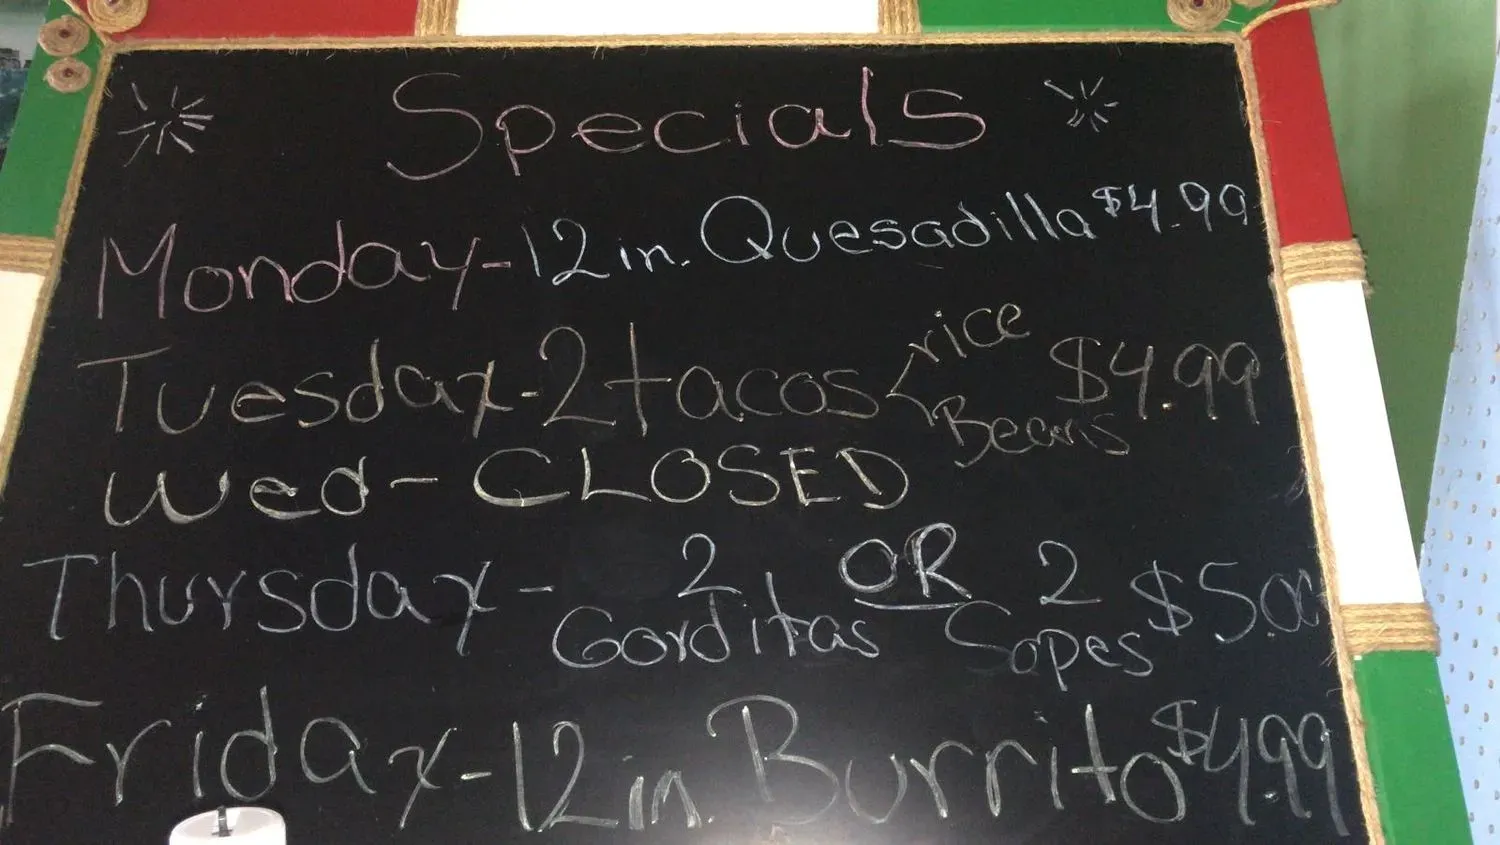 Specials
Monday-12in. Quesadilla $4.99
Tuesday-2 tacos < rice Beans $4.99
Wed-CLOSED
Thursday- 2 Gorditas OR 2 Sopes $5.00
Friday-12in. Burrito $4.99